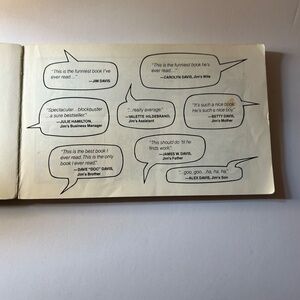 "This is the funniest book I've
ever read..."
—JIM DAVIS
"This is the funniest book he's
ever read..."
—CAROLYN DAVIS, Jim's Wife
"Spectacular...blockbuster
...a sure bestseller."
—JULIE HAMILTON,
Jim's Business Manager
"...really average."
—VALETTE HILDEBRAND,
Jim's Assistant
"It's such a nice book.
He's such a nice boy."
—BETTY DAVIS,
Jim's Mother
"This is the best book I
ever read. This is the only
book I ever read."
—DAVE "DOC" DAVIS,
Jim's Brother
"This should do 'til he
finds work."
—JAMES W. DAVIS,
Jim's Father
"...goo, goo...ha, ha, ha."
—ALEX DAVIS, Jim's Son